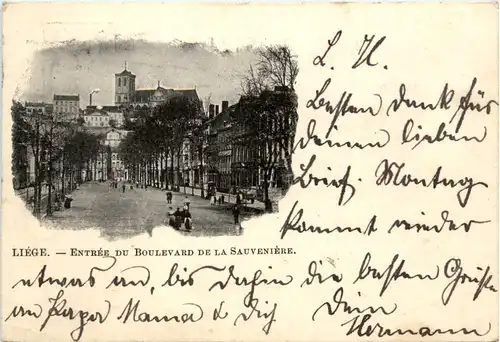 L. H.
Besten Dank für
deinen lieben
Brief. Montag
kommt wieder
LIÉGE. — ENTRÉE DU BOULEVARD DE LA SAUVENIÈRE.
etwas an, bis dahin die besten Grüße
an Papa Mama & Dich, Dein
Hermann